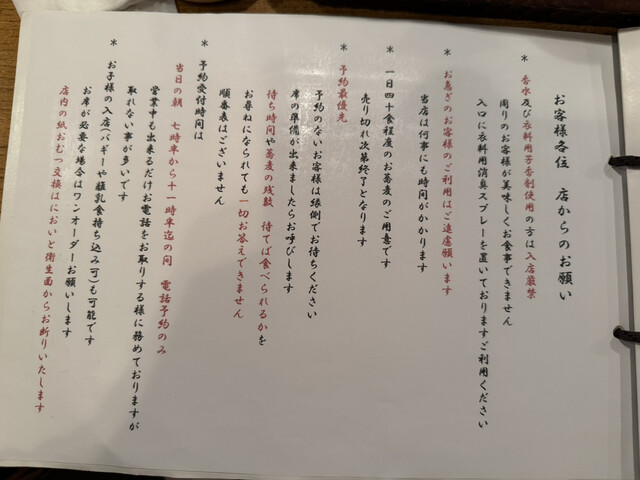 お客様各位 店からのお願い
＊ 香水及び衣料用芳香剤使用の方は入店厳禁
周りのお客様が美味しくお食事できません
入口に衣料用消臭スプレーを置いておりますご利用ください
＊ お急ぎのお客様のご利用はご遠慮願います
当店は何事にも時間がかかります
＊ 一日四十食程度のお蕎麦のご用意です
売り切れ次第終了となります
＊ 予約最優先
予約のないお客様は縁側でお待ちください
席の準備が出来ましたらお呼びします
待ち時間や蕎麦の残数 待てば食べられるかを
お尋ねになられても一切お答えできません
順番表はございません
＊ 予約受付時間は
当日の朝 七時半から十一時半迄の間 電話予約のみ
営業中も出来るだけお電話をお取りする様に務めておりますが
取れない事が多いです
＊ お子様の入店(バギーや離乳食持ち込み可)も可能です
お席が必要な場合はワンオーダーお願いします
店内の紙おむつ交換はにおいと衛生面からお断りいたします